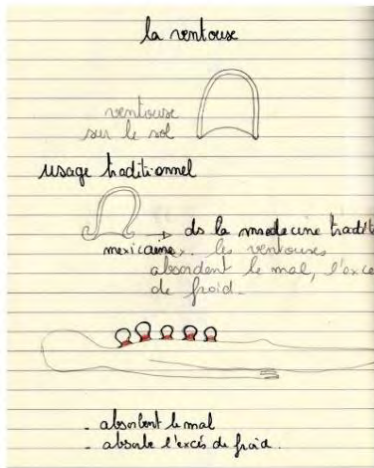 la ventouse
ventouse
sur le sol
usage traditionnel
→ ds la medecine tradit
mexicaine. les ventouses
absordent le mal, l'exce
de froid.
- absorbent le mal
- absorbe l'excés de froid.